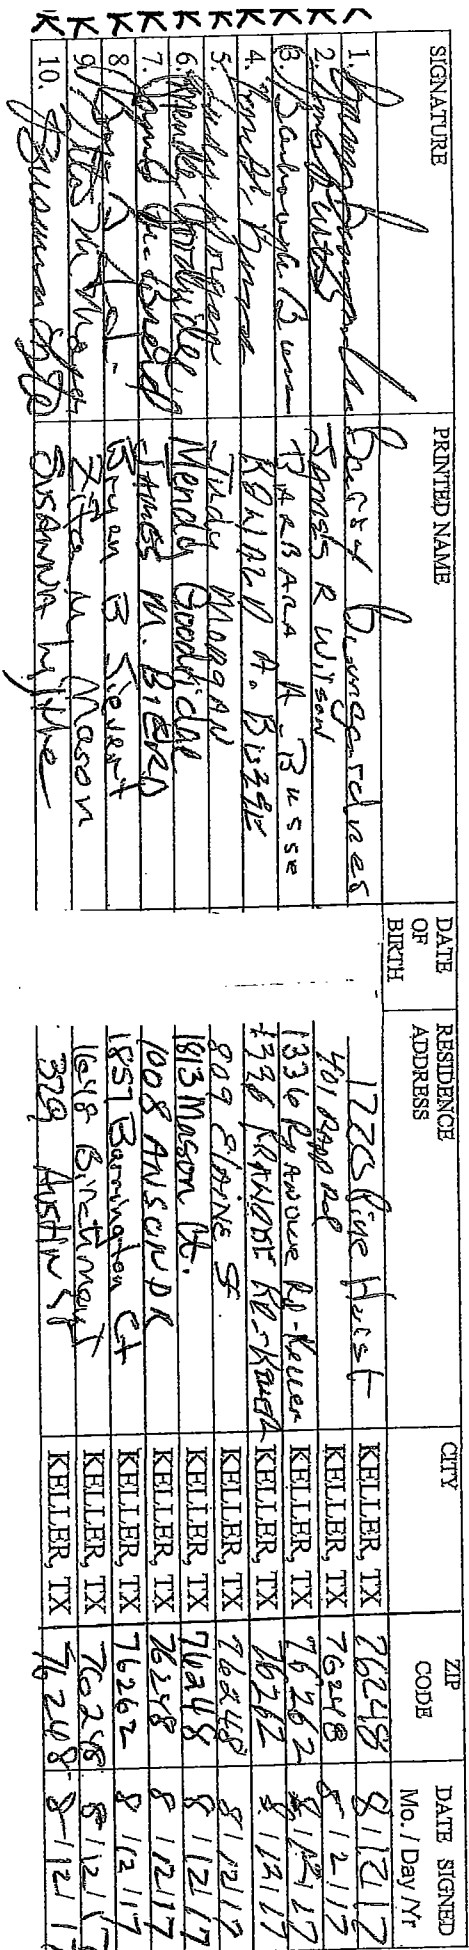 SIGNATURE PRINTED NAME DATE OF BIRTH RESIDENCE ADDRESS CITY ZIP CODE DATE SIGNED Mo. / Day / Yr
K 1. 1220 Pine KELLER, TX 76248 8/12/17
K 2. JAMES R WILSON 401 RAPP Rd KELLER, TX 76248 8/12/17
K 3. Barbara Busse BARBARA A. BUSSE 1336 Rd-Keller KELLER, TX 76262 8/12/17
K 4. A. 1336 RD-KELLER KELLER, TX 76262 8/12/17
K 5. Judy Morgan Judy MORGAN 809 ELAINE St KELLER, TX 76248 8/12/17
K 6. Mendy Goodridge Mendy Goodridge 1813 Mason Ct. KELLER, TX 76248 8/12/17
K 7. JAMES M. BIERD 1008 ANSON DR KELLER, TX 76248 8/12/17
K 8. Bryan B Sievert 1857 Barrington Ct KELLER, TX 76262 8/12/17
K 9. Zita M Mason 1648 Birchmont KELLER, TX 76248 8/12/17
K 10. SUSANNA 379 Austin St KELLER, TX 76248 8/12/17